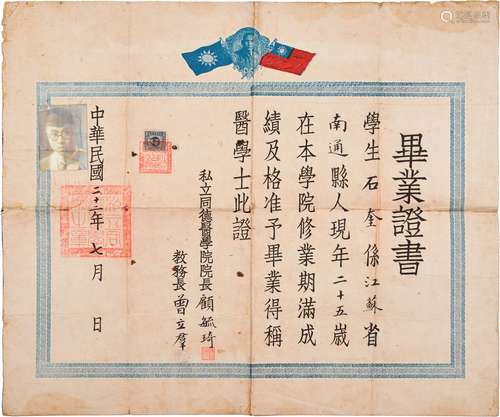 畢業證書
學生石奎係江蘇省
南通縣人現年二十五歲
在本學院修業期滿成
績及格准予畢業得稱
醫學士此證
私立同德醫學院院長顧毓琦
教務長曾立羣
中華民國二十二年七月 日